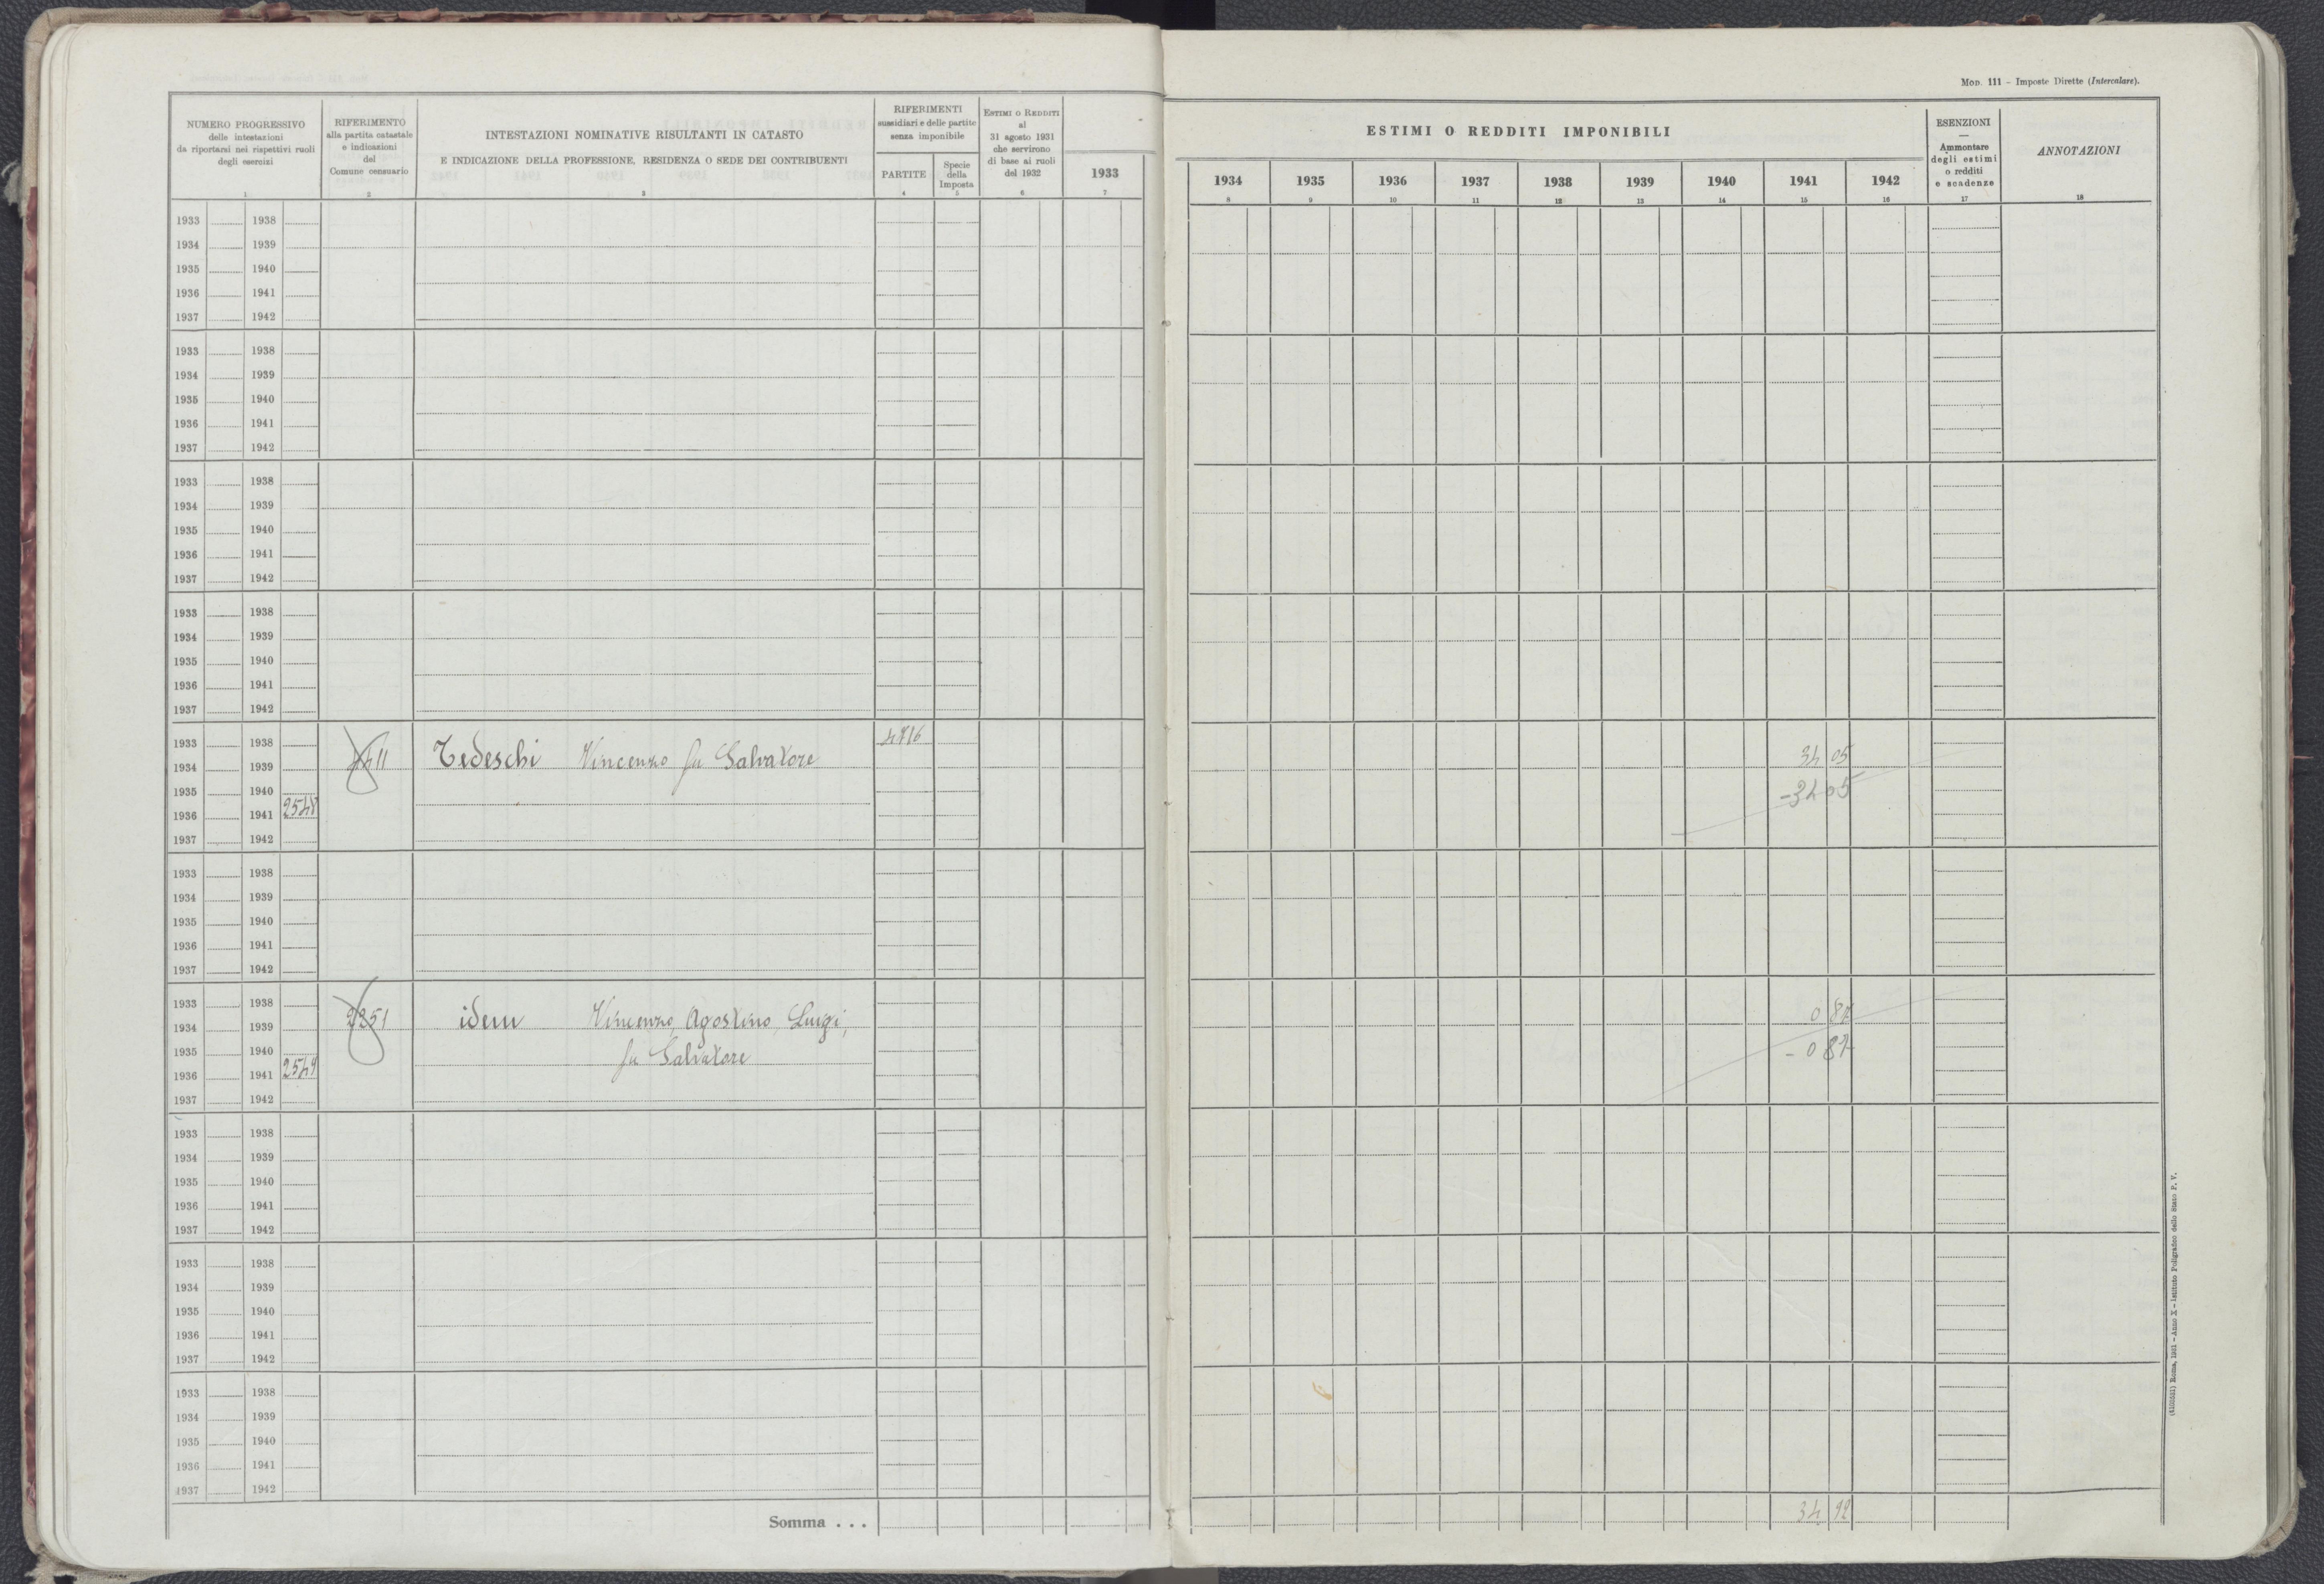 Mod. 111 – Imposte Dirette (Intercalare).
NUMERO PROGRESSIVO
delle intestazioni
da riportarsi nei rispettivi ruoli
degli esercizi
1
RIFERIMENTO
alla partita catastale
e indicazioni
del
Comune censuario
2
INTESTAZIONI NOMINATIVE RISULTANTI IN CATASTO
E INDICAZIONE DELLA PROFESSIONE, RESIDENZA O SEDE DEI CONTRIBUENTI
3
RIFERIMENTI
sussidiari e delle partite
senza imponibile
PARTITE
4
Specie
della
Imposta
5
ESTIMI O REDDITI
al
31 agosto 1931
che servirono
di base ai ruoli
del 1932
6
1933
7
ESTIMI O REDDITI IMPONIBILI
1934 1935 1936 1937 1938 1939 1940 1941 1942
8 9 10 11 12 13 14 15 16
ESENZIONI
—
Ammontare
degli estimi
o redditi
e scadenze
17
ANNOTAZIONI
18
1933 1938
1934 1939
1935 1940
1936 1941
1937 1942
1933 1938
1934 1939
1935 1940
1936 1941
1937 1942
1933 1938
1934 1939
1935 1940
1936 1941
1937 1942
1933 1938
1934 1939
1935 1940
1936 1941
1937 1942
1933 1938 4716
1934 1939 Tedeschi Vincenzo fu Salvatore 34 05
1935 1940 -34 05
1936 1941 2548
1937 1942
1933 1938
1934 1939
1935 1940
1936 1941
1937 1942
1933 1938
1934 1939 2251 idem Vincenzo, Agostino, Luigi, 0 87
1935 1940 fu Salvatore - 0 87
1936 1941 2549
1937 1942
1933 1938
1934 1939
1935 1940
1936 1941
1937 1942
1933 1938
1934 1939
1935 1940
1936 1941
1937 1942
1933 1938
1934 1939
1935 1940
1936 1941
1937 1942
Somma . . . 34 92
(4103531) Roma, 1931 – Anno X – Istituto Poligrafico dello Stato P. V.